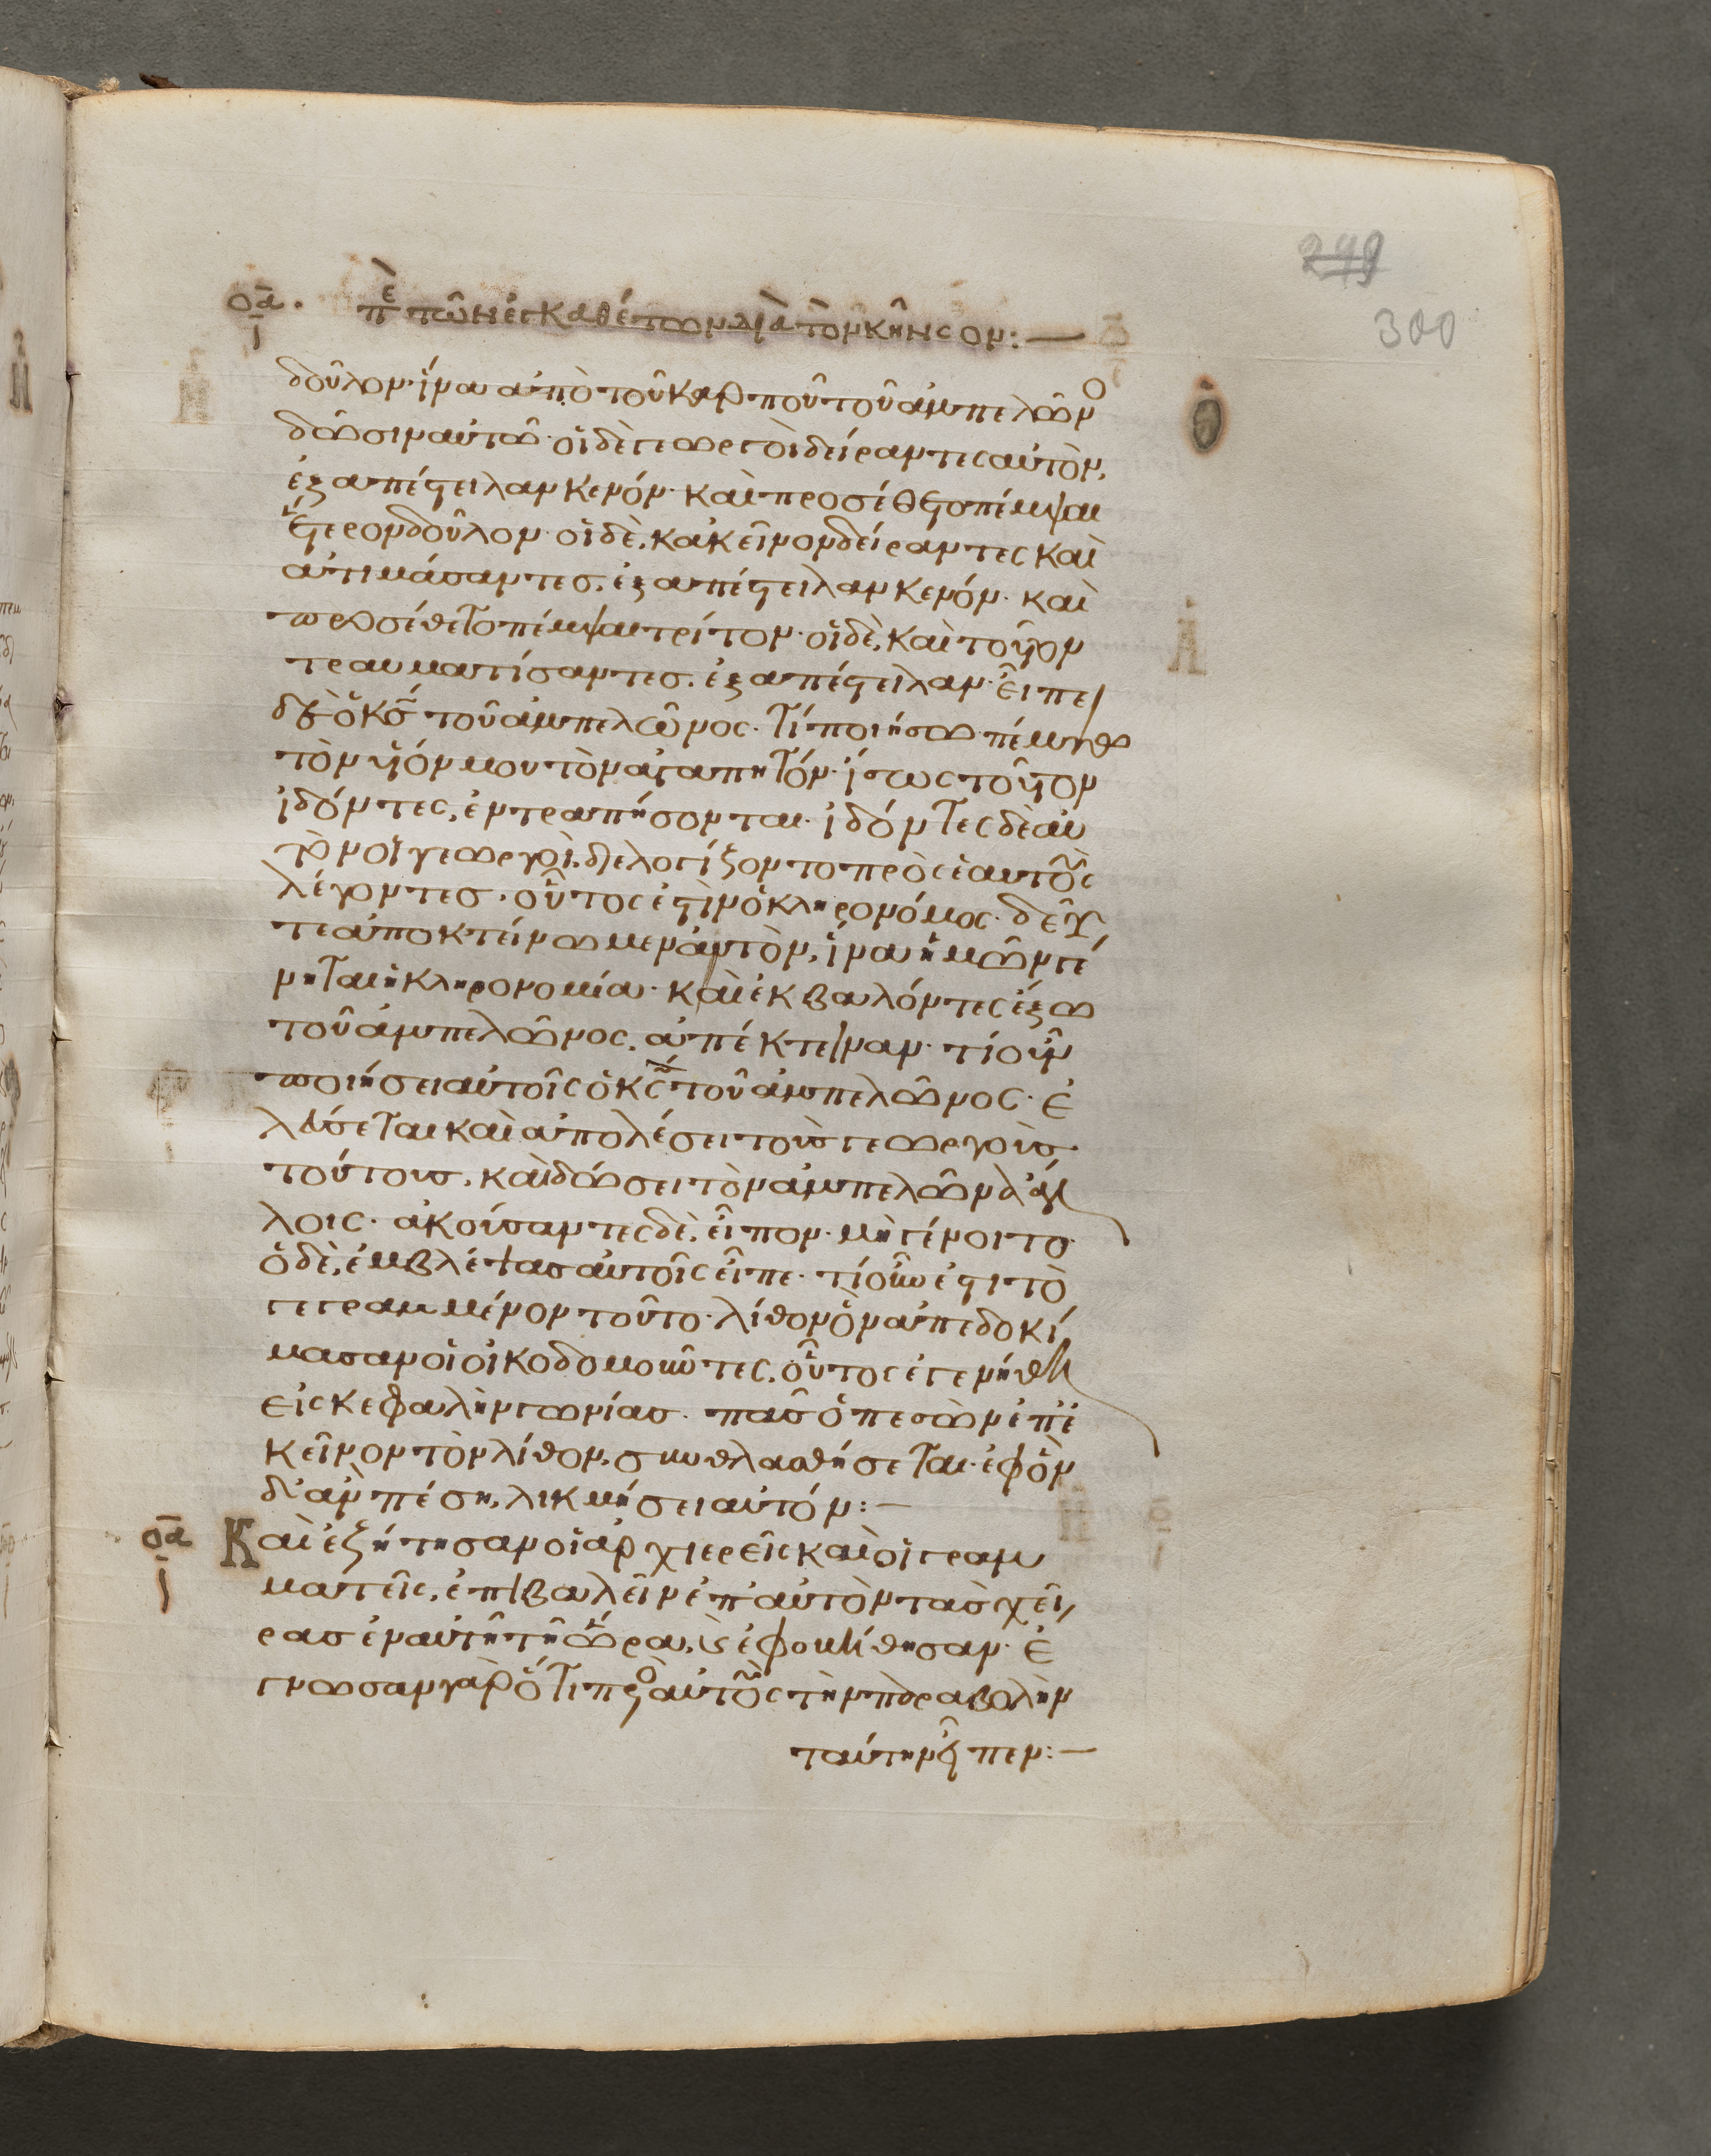 299
300
οα. πε τῶν ἐγκαθέτων διὰ τὸν κῆνσον:—
δοῦλον· ἵνα ἀπὸ τοῦ καρποῦ τοῦ ἀμπελῶνο
δῶσιν αὐτῶ· οἱ δὲ γεωργοὶ δείραντες αὐτὸν,
ἐξαπέστειλαν κενόν· καὶ προσέθετο πέμψαι
ἕτερον δοῦλον· οἱ δὲ, κἀκεῖνον δείραντες καὶ
ἀτιμάσαντες, ἐξαπέστειλαν κενόν· καὶ
προσέθετο πέμψαι τρίτον· οἱ δὲ, καὶ τοῦτον
τραυματίσαντες, ἐξαπέστειλαν· εἶπε
δὲ ὁ κσ τοῦ ἀμπελῶνος· τί ποιήσω· πέμψω
τὸν υἱόν μου τὸν ἀγαπητόν· ἴσως τοῦτον
ἰδόντες, ἐντραπήσονται· ἰδόντες δὲ αὐ
τὸν οἱ γεωργοὶ, διελογίζοντο πρὸς ἑαυτοὺς
λέγοντες· οὗτος ἐστὶν ὁ κληρονόμος· δεῦ
τε ἀποκτείνωμεν αὐτὸν, ἵνα ἡμῶν γέ
νηται ἡ κληρονομία· καὶ ἐκβαλόντες ἔξω
τοῦ ἀμπελῶνος, ἀπέκτειναν· τί οὖν
ποιήσει αὐτοῖς ὁ κς τοῦ ἀμπελῶνος· ἐ
λεύσεται καὶ ἀπολέσει τοὺς γεωργοὺς
τούτους, καὶ δώσει τὸν ἀμπελῶνα ἄλ
λοις· ἀκούσαντες δὲ, εἶπον· μὴ γένοιτο·
ὁ δὲ, ἐμβλέψας αὐτοῖς εἶπε· τί οὖν ἐστι τὸ
γεγραμμένον τοῦτο· λίθον ὃν ἀπεδοκί
μασαν οἱ οἰκοδομοῦντες, οὗτος ἐγενήθη
εἰς κεφαλὴν γωνίας· πᾶς ὁ πεσὼν ἐπ' ἐ
κεῖνον τὸν λίθον, συνθλασθήσεται· ἐφ' ὃν
δ' ἂν πέση, λικμήσει αὐτόν:—
οα Καὶ ἐζήτησαν οἱ ἀρχιερεῖς καὶ οἱ γραμ
ματεῖς, ἐπιβαλεῖν ἐπ' αὐτὸν τὰς χεῖ
ρας ἐν αὐτῆ τῆ ὥρα, ϗ ἐφοβήθησαν· ἔ
γνωσαν γὰρ ὅτι πρὸ αὐτοὺς τὴν παραβολὴν
ταύτην εἶπεν:—